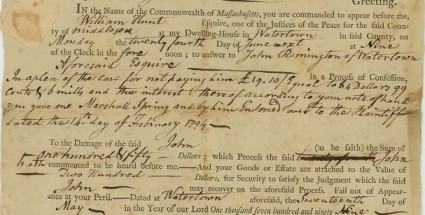 Greeting.
IN the Name of the Commonwealth of Massachusetts, you are commanded to appear before me,
William Hunt Esquire, one of the Justices of the Peace for the said Coun-
ty of middlesex at my Dwelling-House in Watertown in said County, on
Monday the twenty fourth Day of June next at Nine
of the Clock in the fore noon; to answer to John Rimington of Watertown
Aforesaid Esquire
In a plea of the case for not paying him £19.10/5 equal to 64 Dollars 99 in a Process of Confession,
Cents & 6 mills and the interest thereof according to your note of hand
you gave one Marshall Spring and by him Endorsed over to the Plaintiff
dated the 14th day of February 1794
To the Damage of the said John (as he saith) the Sum of
one hundred & fifty Dollars; which Process the said John
hath commenced to be heard before me. And your Goods or Estate are attached to the Value of
Two Hundred Dollars, for Security to satisfy the Judgment which the said
John may recover on the aforesaid Process. Fail not of Appear-
ance at your Peril. Dated at Watertown the aforesaid Seventeenth Day of
May in the Year of our Lord One thousand seven hundred and ninety Nine